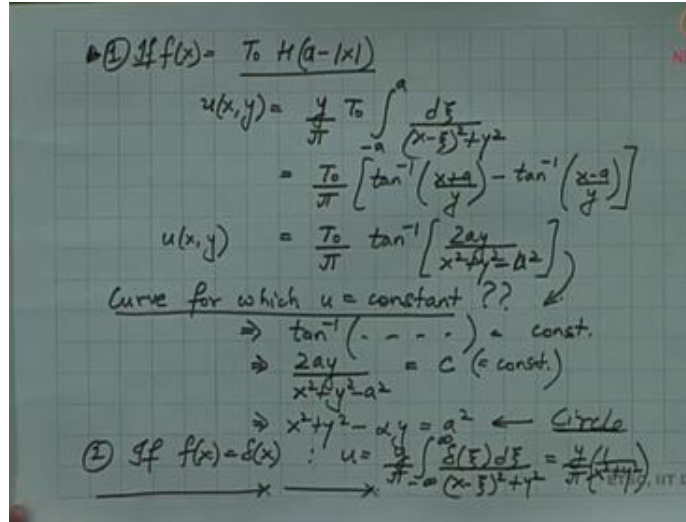 ① If f(x) = T₀ H(a-|x|)
u(x,y) = y/π T₀ ∫₋ₐᵃ dξ/((x-ξ)²+y²)
= T₀/π [tan⁻¹((x+a)/y) - tan⁻¹((x-a)/y)]
u(x,y) = T₀/π tan⁻¹[2ay/(x²+y²-a²)]
Curve for which u = constant ??
⇒ tan⁻¹(. - - - .) = const.
⇒ 2ay/(x²+y²-a²) = C (= const.)
⇒ x²+y² - αy = a² ← Circle
② If f(x) = δ(x) : u = y/π ∫₋∞^∞ δ(ξ)dξ/((x-ξ)²+y²) = y/π (1/(x²+y²))